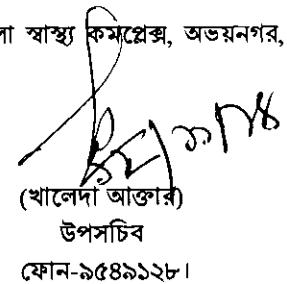 লা স্বাস্থ্য কমপ্লেক্স, অভয়নগর,
(খালেদা আক্তার)
উপসচিব
ফোন-৯৫৪৯১২৮।